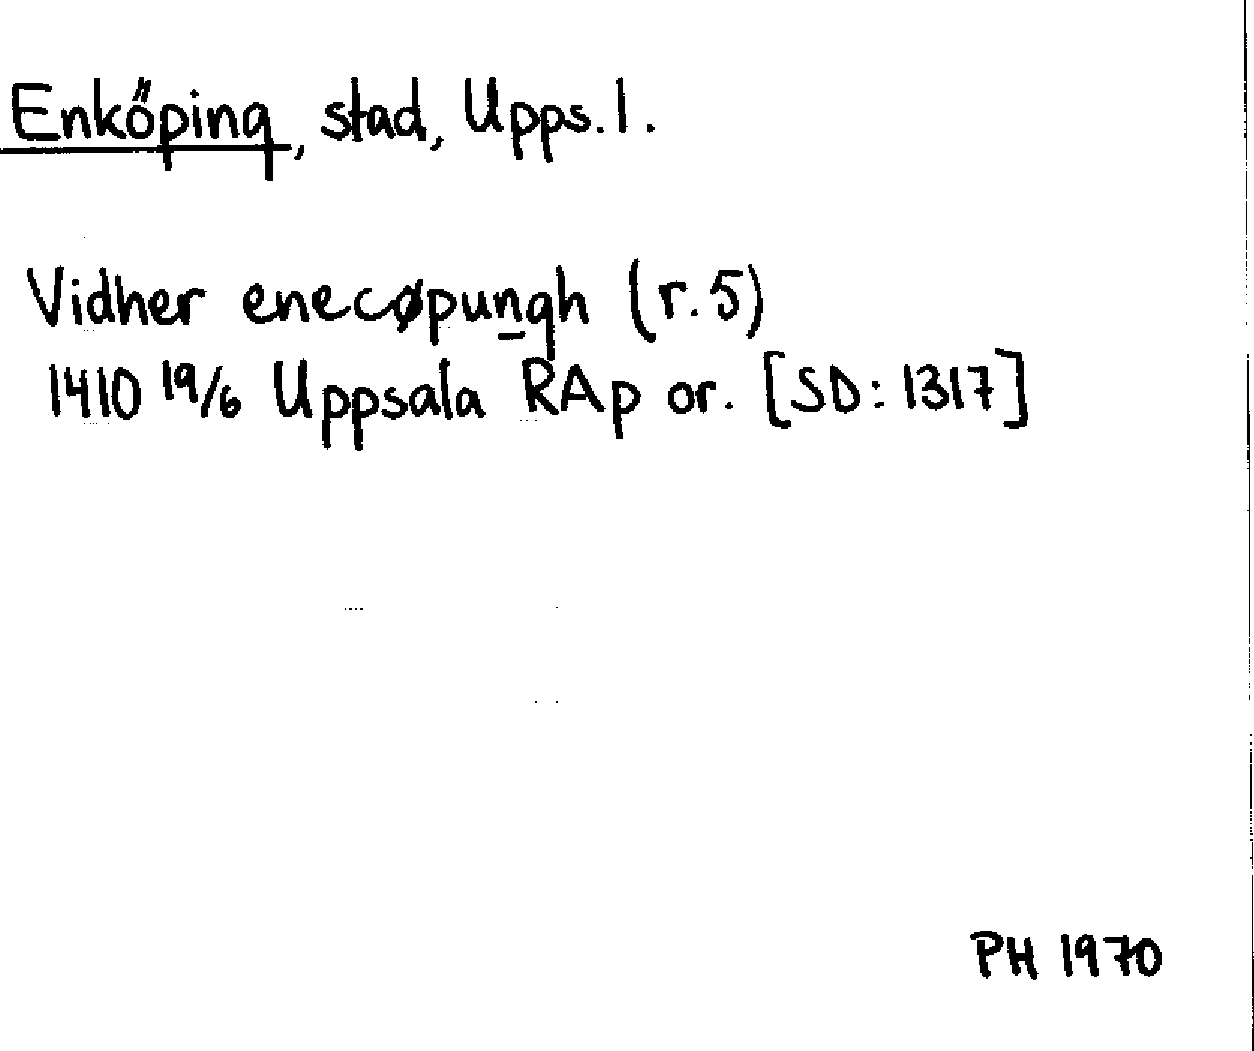 Enköping, stad, Upps.l.
Vidher enecøpungh (r.5)
1410 19/6 Uppsala RAp or. [SD: 1317]
PH 1970